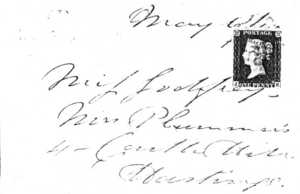 May
POSTAGE
ONE PENNY
Miss Godfrey
Mrs Plummer's
4 Castle Hill
Hastings